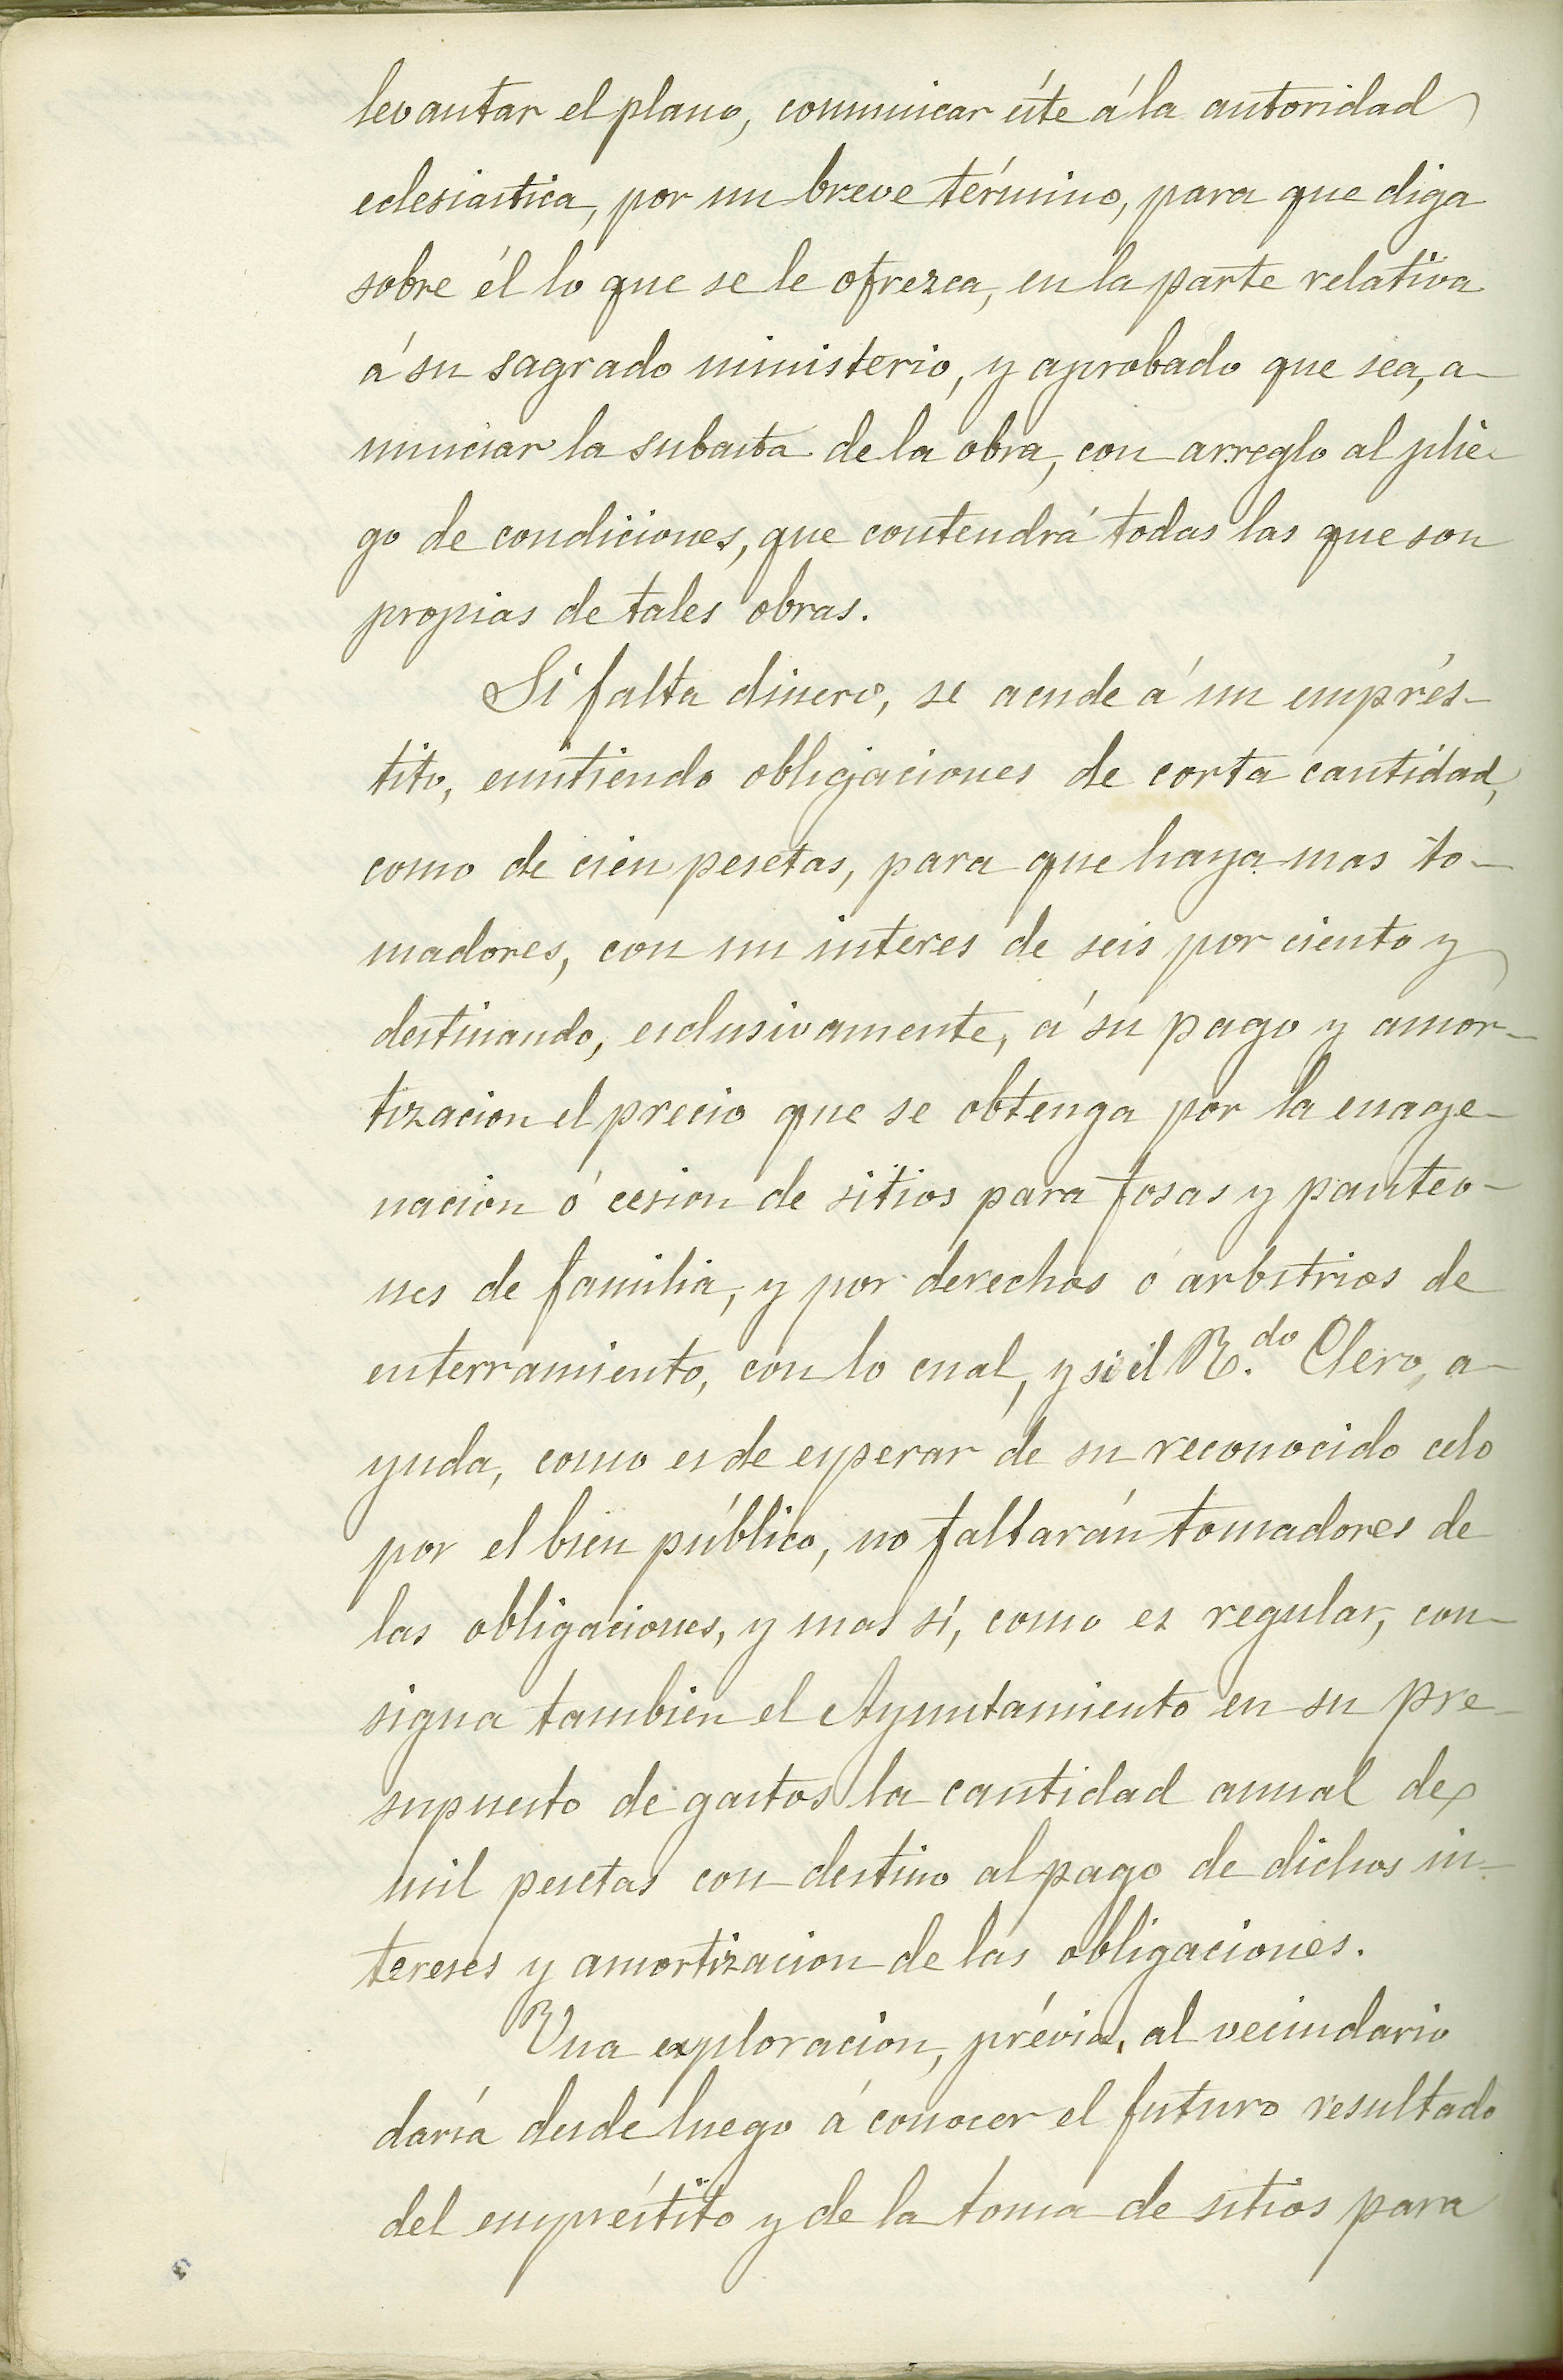 levantar el plano, comunicar éste á la autoridad
eclesiastica, por un breve término, para que diga
sobre él lo que se le ofrezca, en la parte relativa
á su sagrado ministerio, y aprobado que sea, a-
nunciar la subasta de la obra, con arreglo al plie-
go de condiciones, que contendrá todas las que son
propias de tales obras.
Si falta dinero, se acude á un emprés-
tito, emitiendo obligaciones de corta cantidad,
como de cien pesetas, para que haya mas to-
madores, con un interes de seis por ciento y
destinando, esclusivamente, á su pago y amor-
tizacion el precio que se obtenga por la enage-
nacion ó cesion de sitios para fosas y panteo-
nes de familia, y por derechos ó arbitrios de
enterramiento, con lo cual, y si el R.do Clero, a-
yuda, como es de esperar de su reconocido celo
por el bien público, no faltarán tomadores de
las obligaciones, y mas si, como es regular, con-
signa tambien el Ayuntamiento en su pre-
supuesto de gastos la cantidad anual de
mil pesetas con destino al pago de dichos in-
tereses y amortizacion de las obligaciones.
Una exploracion, prévia, al vecindario
daría desde luego á conocer el futuro resultado
del empréstito y de la toma de sitios para